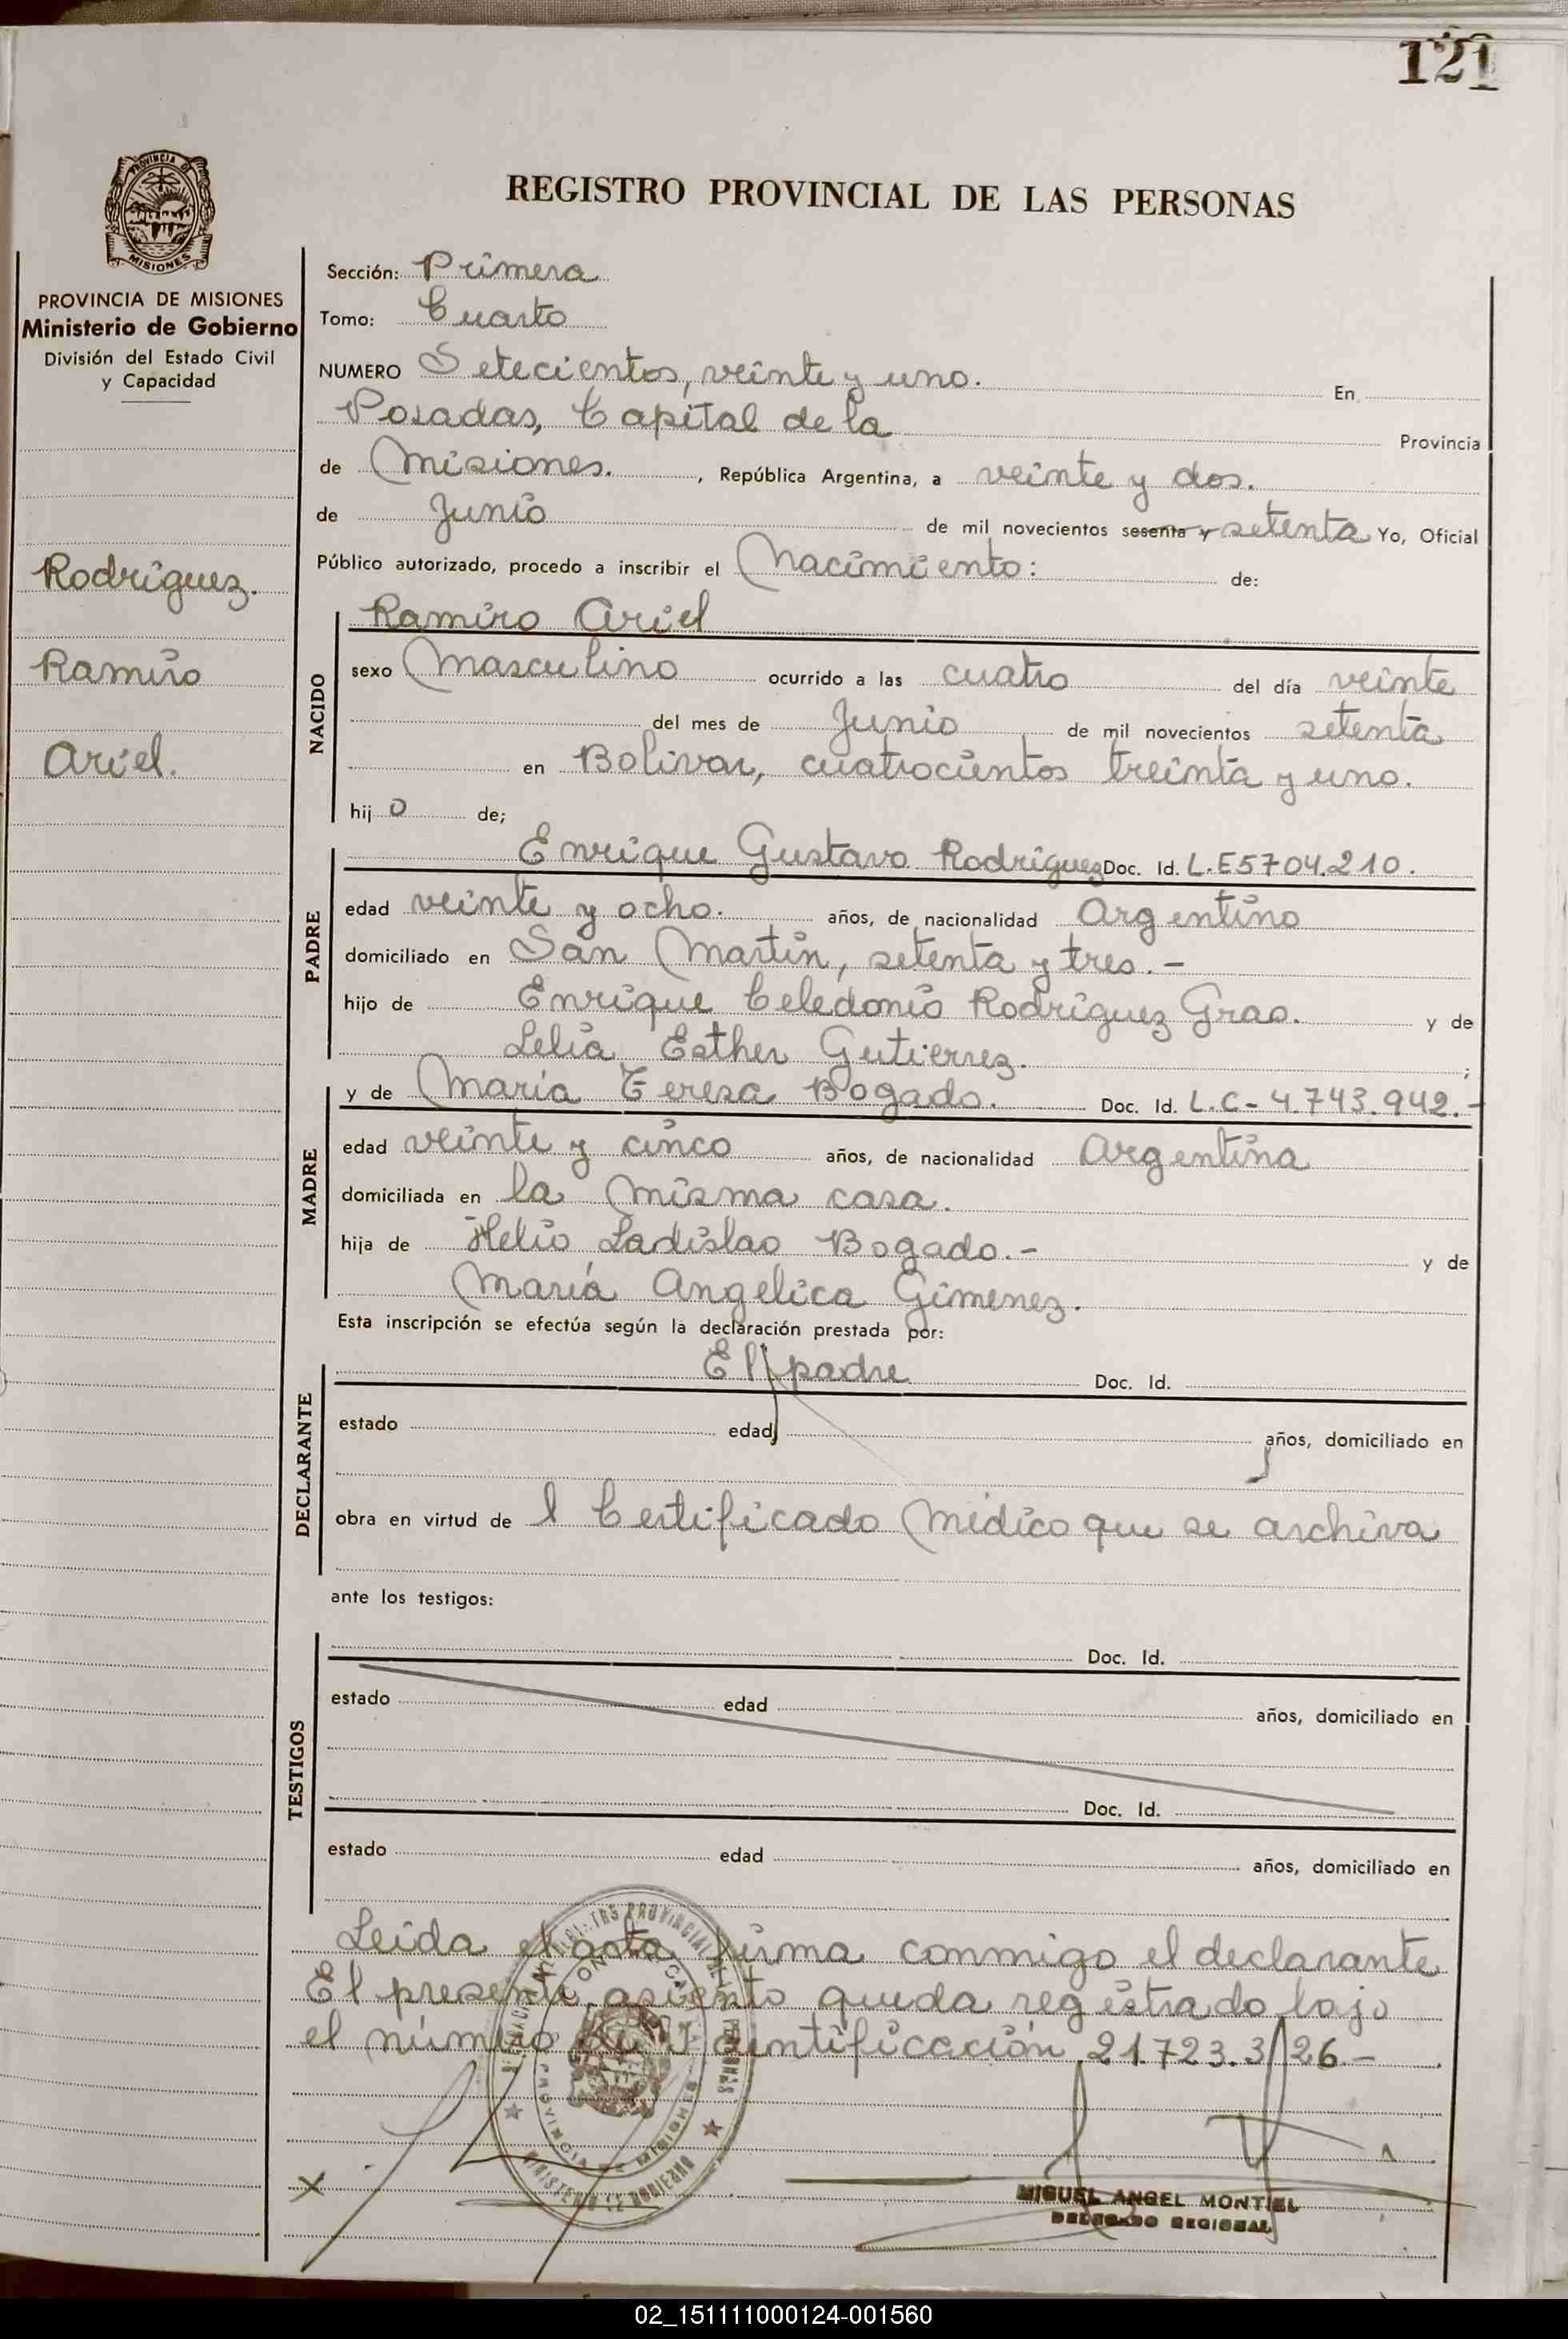 121
PROVINCIA DE
MISIONES
REGISTRO PROVINCIAL DE LAS PERSONAS
PROVINCIA DE MISIONES
Ministerio de Gobierno
División del Estado Civil
y Capacidad
Rodríguez.
Ramiro
Ariel.
Sección: Primera
Tomo: Cuarto
NUMERO Setecientos, veinte y uno. En
Posadas, Capital de la Provincia
de Misiones. , República Argentina, a veinte y dos.
de Junio de mil novecientos sesenta y setenta Yo, Oficial
Público autorizado, procedo a inscribir el Nacimiento: de:
NACIDO
Ramiro Ariel
sexo Masculino ocurrido a las cuatro del día veinte
del mes de Junio de mil novecientos setenta
en Bolivar, cuatrocientos treinta y uno.
hijo de;
PADRE
Enrique Gustavo Rodríguez Doc. Id. L.E5704.210.
edad veinte y ocho. años, de nacionalidad Argentino
domiciliado en San Martín, setenta y tres.-
hijo de Enrique Celedonio Rodríguez Grao. y de
Lelia Esther Gutierrez. ;
MADRE
y de María Teresa Bogado. Doc. Id. L.C-4.743.942.-
edad veinte y cinco años, de nacionalidad Argentina
domiciliada en la misma casa.
hija de Helio Ladislao Bogado.- y de
María Angelica Gimenez.
Esta inscripción se efectúa según la declaración prestada por:
DECLARANTE
El padre Doc. Id.
estado edad años, domiciliado en
obra en virtud de l Certificado Médico que se archiva
ante los testigos:
TESTIGOS
Doc. Id.
estado edad años, domiciliado en
Doc. Id.
estado edad años, domiciliado en
Leida el acta firma conmigo el declarante
El presente asiento queda registrado bajo
el número de Identificación 21.723.326.-
MIGUEL ANGEL MONTIEL
DELEGADO REGIONAL
02_151111000124-001560